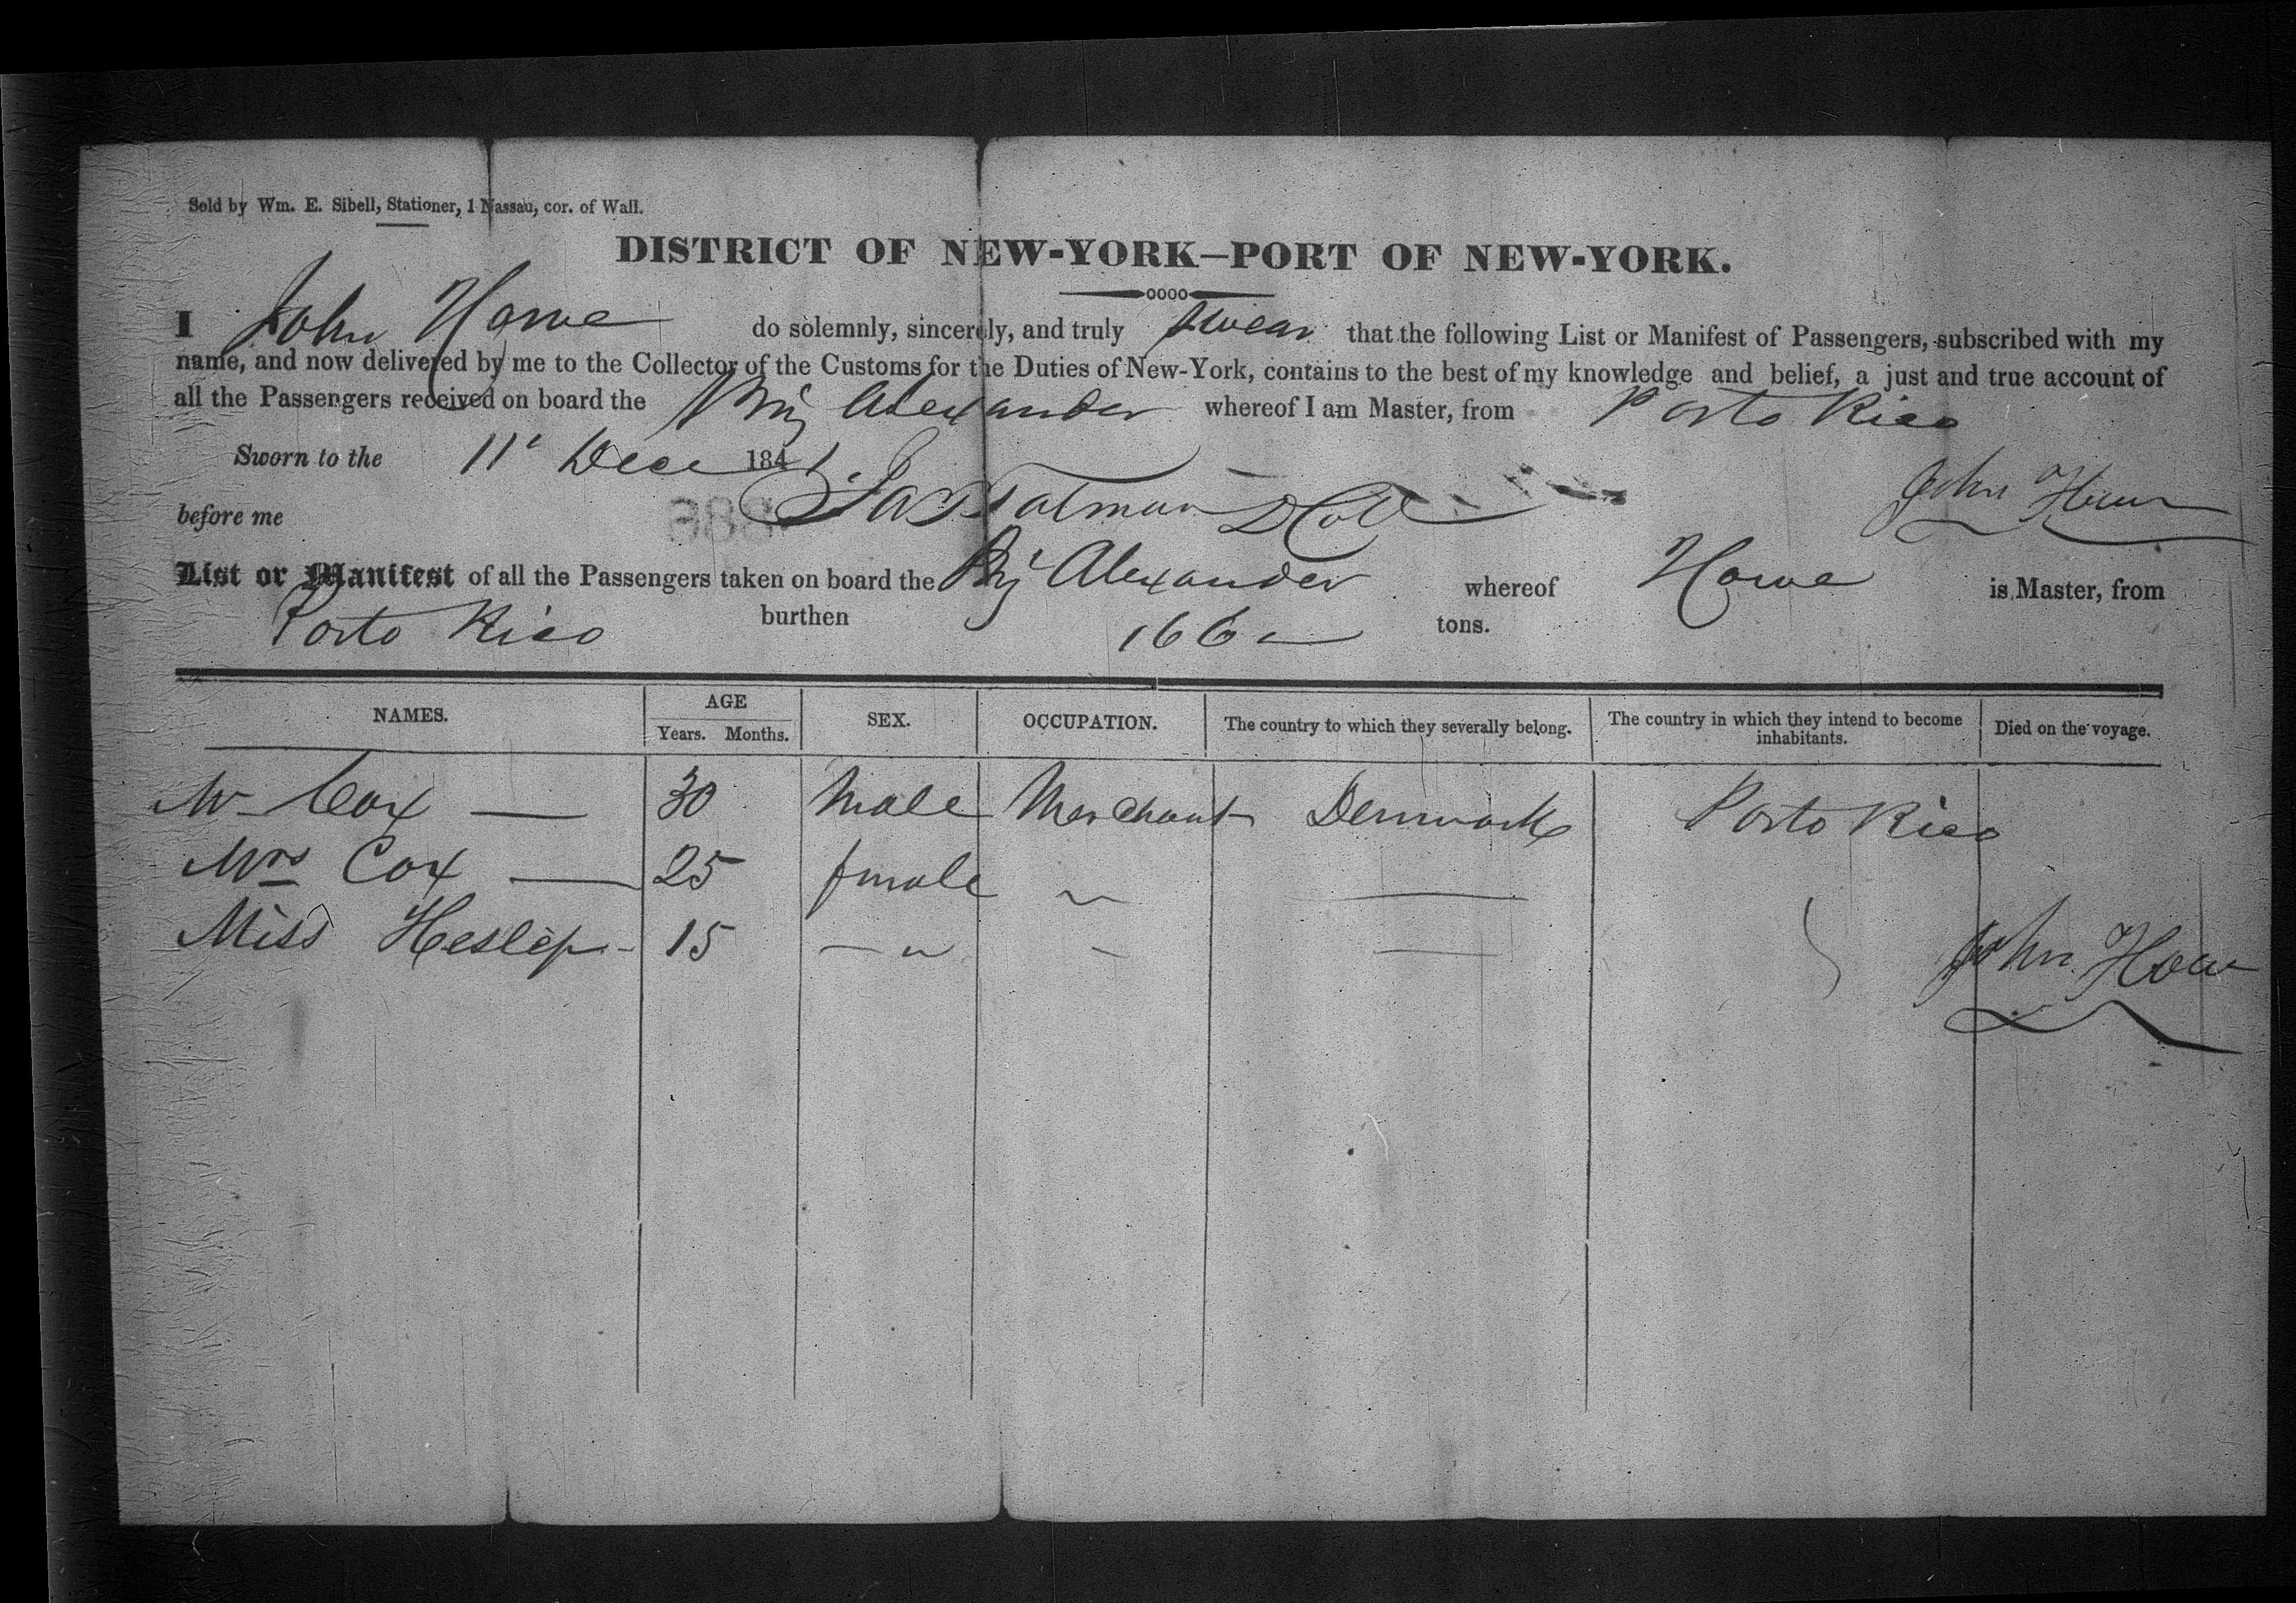 Sold by Wm. E. Sibell, Stationer, 1 Nassau, cor. of Wall.
DISTRICT OF NEW-YORK—PORT OF NEW-YORK.
I John Howe do solemnly, sincerely, and truly swear that the following List or Manifest of Passengers, subscribed with my
name, and now delivered by me to the Collector of the Customs for the Duties of New-York, contains to the best of my knowledge and belief, a just and true account of
all the Passengers received on board the Brig Alexander whereof I am Master, from Porto Rico
Sworn to the 11' Dece 1841 John Howe
before me Jas Talman D Coll
List or Manifest of all the Passengers taken on board the Brig Alexander whereof Howe is Master, from
Porto Rico burthen 166 tons.
NAMES. AGE Years. Months. SEX. OCCUPATION. The country to which they severally belong. The country in which they intend to become inhabitants. Died on the voyage.
Mr Cox — 30 Male Merchant Denmark Porto Rico
Mrs Cox — 25 female " —
Miss Heslep - 15 — " - —
John Howe